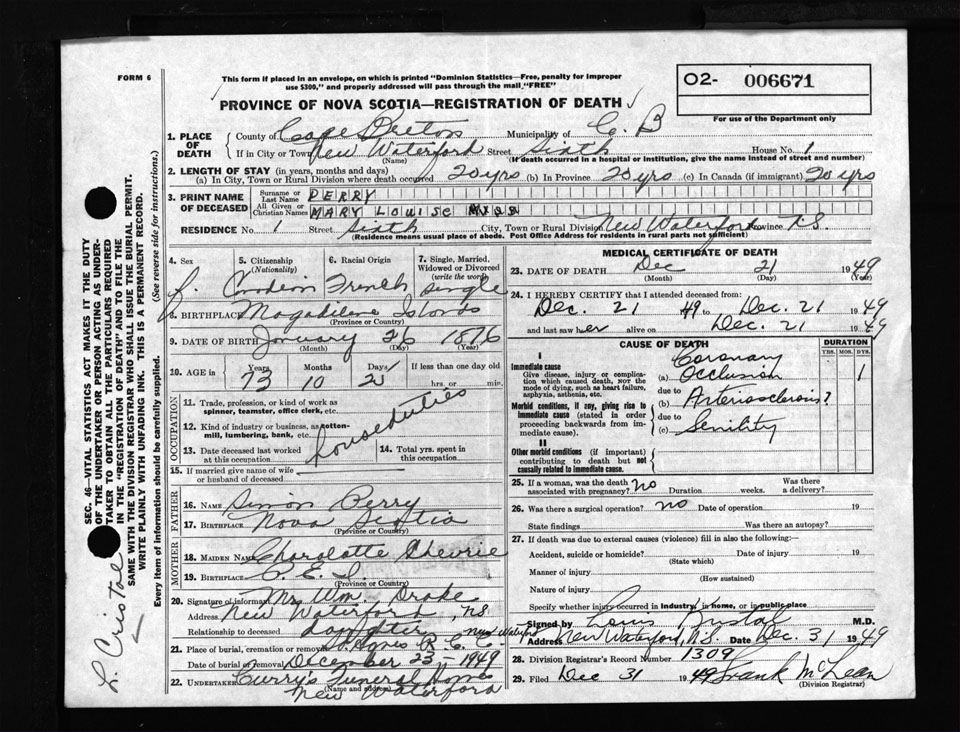 FORM 6
This form if placed in an envelope, on which is printed "Dominion Statistics—Free, penalty for improper
use $300," and properly addressed will pass through the mail "FREE"
O2- 006671
For use of the Department only
PROVINCE OF NOVA SCOTIA—REGISTRATION OF DEATH
SEC. 46—VITAL STATISTICS ACT MAKES IT THE DUTY
OF THE UNDERTAKER OR PERSON ACTING AS UNDER-
TAKER TO OBTAIN ALL THE PARTICULARS REQUIRED
IN THE "REGISTRATION OF DEATH" AND TO FILE THE
SAME WITH THE DIVISION REGISTRAR WHO SHALL ISSUE THE BURIAL PERMIT.
WRITE PLAINLY WITH UNFADING INK. THIS IS A PERMANENT RECORD.
Every item of information should be carefully supplied. (See reverse side for instructions.)
L. Cristol
1. PLACE OF DEATH County of Cape Breton Municipality of C. B
If in City or Town New Waterford Street Sixth House No. 1
(Name) (If death occurred in a hospital or institution, give the name instead of street and number)
2. LENGTH OF STAY (in years, months and days)
(a) In City, Town or Rural Division where death occurred 20 yrs (b) In Province 20 yrs (c) In Canada (if immigrant) 20 yrs
3. PRINT NAME OF DECEASED Surname or Last Name PERRY
All Given or Christian Names MARY LOUISE MISS
RESIDENCE No. 1 Street Sixth City, Town or Rural Division New Waterford Province N.S.
(Residence means usual place of abode. Post Office Address for residents in rural parts not sufficient)
4. Sex 5. Citizenship (Nationality) 6. Racial Origin 7. Single, Married, Widowed or Divorced (write the word)
f. French single
8. BIRTHPLACE Magadilene Islands
(Province or Country)
9. DATE OF BIRTH January 26 1876
(Month) (Day) (Year)
10. AGE in Years Months Days If less than one day old
73 10 25 hrs. or min.
OCCUPATION
11. Trade, profession, or kind of work as
spinner, teamster, office clerk, etc.
12. Kind of industry or business, as cotton-
mill, lumbering, bank, etc.
houseduties
13. Date deceased last worked at this occupation
14. Total yrs. spent in this occupation
15. If married give name of wife
or husband of deceased
FATHER
16. Name Simon Perry
17. BIRTHPLACE Nova Scotia
(Province or Country)
MOTHER
18. MAIDEN NAME Charolatte Chevrie
19. BIRTHPLACE P. E. I.
(Province or Country)
20. Signature of informant Mrs Wm. Drake
Address New Waterford, N.S.
Relationship to deceased Daughter
21. Place of burial, cremation or removal St. Agnes R. C. C. New Waterford
Date of burial or removal December 23 - 1949
22. UNDERTAKER Curry's Funeral Home
(Name and address)
New Waterford
MEDICAL CERTIFICATE OF DEATH
23. DATE OF DEATH Dec 21 1949
(Month) (Day) (Year)
24. I HEREBY CERTIFY that I attended deceased from:
Dec. 21 49 to Dec. 21 1949
and last saw her alive on Dec. 21 1949
CAUSE OF DEATH DURATION
YRS. MOS. DYS.
I
Immediate cause
Give disease, injury or complica-
tion which caused death, not the
mode of dying, such as heart failure,
asphyxia, asthenia, etc.
(a) Coronary Occlusion 1
due to
(b) Arteriosclerosis ?
Morbid conditions, if any, giving rise to
immediate cause (stated in order
proceeding backwards from im-
mediate cause).
due to
(c) Senility
II
Other morbid conditions (if important)
contributing to death but not
causally related to immediate cause.
25. If a woman, was the death associated with pregnancy? no Duration weeks. Was there a delivery?
26. Was there a surgical operation? no Date of operation 19
State findings Was there an autopsy?
27. If death was due to external causes (violence) fill in also the following:
Accident, suicide or homicide? Date of injury 19
(State which)
Manner of injury
(How sustained)
Nature of injury
Specify whether injury occurred in industry, in home, or in public place
Signed by Louis Kristal M.D.
Address New Waterford, N.S. Date Dec. 31 1949
28. Division Registrar's Record Number 1309
29. Filed Dec 31 1949 Frank McLean
(Division Registrar)